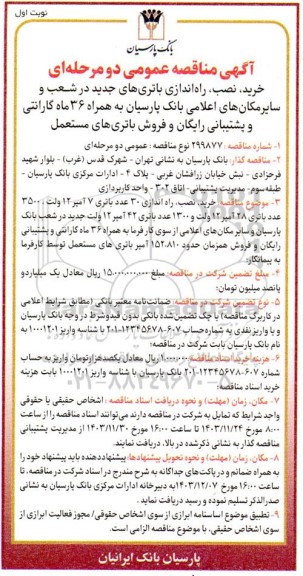 نوبت اول
بانک پارسیان
آگهی مناقصه عمومی دو مرحله‌ای
خرید، نصب، راه‌اندازی باتری‌های جدید در شعب و
سایر مکان‌های اعلامی بانک پارسیان به همراه ۳۶ ماه گارانتی
و پشتیبانی رایگان و فروش باتری‌های مستعمل
۱- شماره مناقصه: ۲۹۹۸۷۷ نوع مناقصه : عمومی دو مرحله‌ای
۲- مناقصه گذار: بانک پارسیان به نشانی تهران - شهرک قدس (غرب) - بلوار شهید
فرحزادی - نبش خیابان زرافشان غربی - پلاک ۴ - ادارات مرکزی بانک پارسیان -
طبقه سوم - مدیریت پشتیبانی - اتاق ۳۰۲ - واحد کارپردازی
۳- موضوع مناقصه: خرید، نصب، راه اندازی ۳۰ عدد باتری ۷ آمپر ۱۲ ولت، ۳۵۰۰
عدد باتری ۲۸ آمپر ۱۲ ولت و ۱۳۰۰ عدد باتری ۴۲ آمپر ۱۲ ولت جدید در شعب بانک
پارسیان و سایر مکان های اعلامی از سوی کارفرما به همراه ۳۶ ماه گارانتی و پشتیبانی
رایگان و فروش همزمان حدود ۱۵۲،۸۱۰ آمپر باتری های مستعمل توسط کارفرما
به پیمانکار:
۴- مبلغ تضمین شرکت در مناقصه: مبلغ ۱۵،۰۰۰،۰۰۰،۰۰۰ ریال معادل یک میلیارد و
پانصد میلیون تومان:
۵- نوع تضمین شرکت در مناقصه: ضمانت‌نامه معتبر بانکی (مطابق شرایط اعلامی
در کاربرگ مناقصه) یا چک تضمین شده بانکی بدون قید و شرط در وجه بانک پارسیان
و یا واریز نقدی به شماره حساب ۶۰۷-۱۲۳۴۵۶۷۸-۲۰۱ با شناسه واریز ۱۰۰۰۱۲۰۱ به
نام بانک پارسیان بابت شرکت در مناقصه:
۶- هزینه خرید اسناد مناقصه: ۱،۰۰۰،۰۰۰ ریال معادل یکصد هزار تومان واریز به حساب
شماره ۶۰۷-۱۲۳۴۵۶۷۸-۲۰۱ بانک پارسیان با شناسه واریز ۱۰۰۰۱۲۰۱ بابت هزینه
خرید اسناد مناقصه:
۷- مکان، زمان (مهلت) و نحوه دریافت اسناد مناقصه : اشخاص حقیقی یا حقوقی
واجد شرایط که تمایل به شرکت در مناقصه دارند می‌توانند اسناد مناقصه را از ساعت
۸:۰۰ مورخ ۱۴۰۳/۱۱/۲۴ تا ساعت ۱۶:۰۰ مورخ ۱۴۰۳/۱۱/۳۰ از مدیریت پشتیبانی
مناقصه گذار به نشانی ذکر شده در بالا، دریافت نمایند.
۸- مکان، زمان (مهلت) و نحوه تحویل پیشنهادها: پیشنهاد دهنده باید پیشنهاد خود را
به همراه ضمائم و در پاکت‌های جداگانه به شرح مندرج در اسناد شرکت در مناقصه، تا
ساعت ۱۶:۰۰ مورخ ۱۴۰۳/۱۲/۰۷ به دبیرخانه ادارات مرکزی بانک پارسیان به نشانی
صدرالذکر تسلیم نموده و رسید دریافت نماید .
۹- تطبیق موضوع اساسنامه ابرازی از سوی اشخاص حقوقی/ مجوز فعالیت ابرازی از
سوی اشخاص حقیقی، با موضوع مناقصه الزامی است.
پارسیان بانک ایرانیان